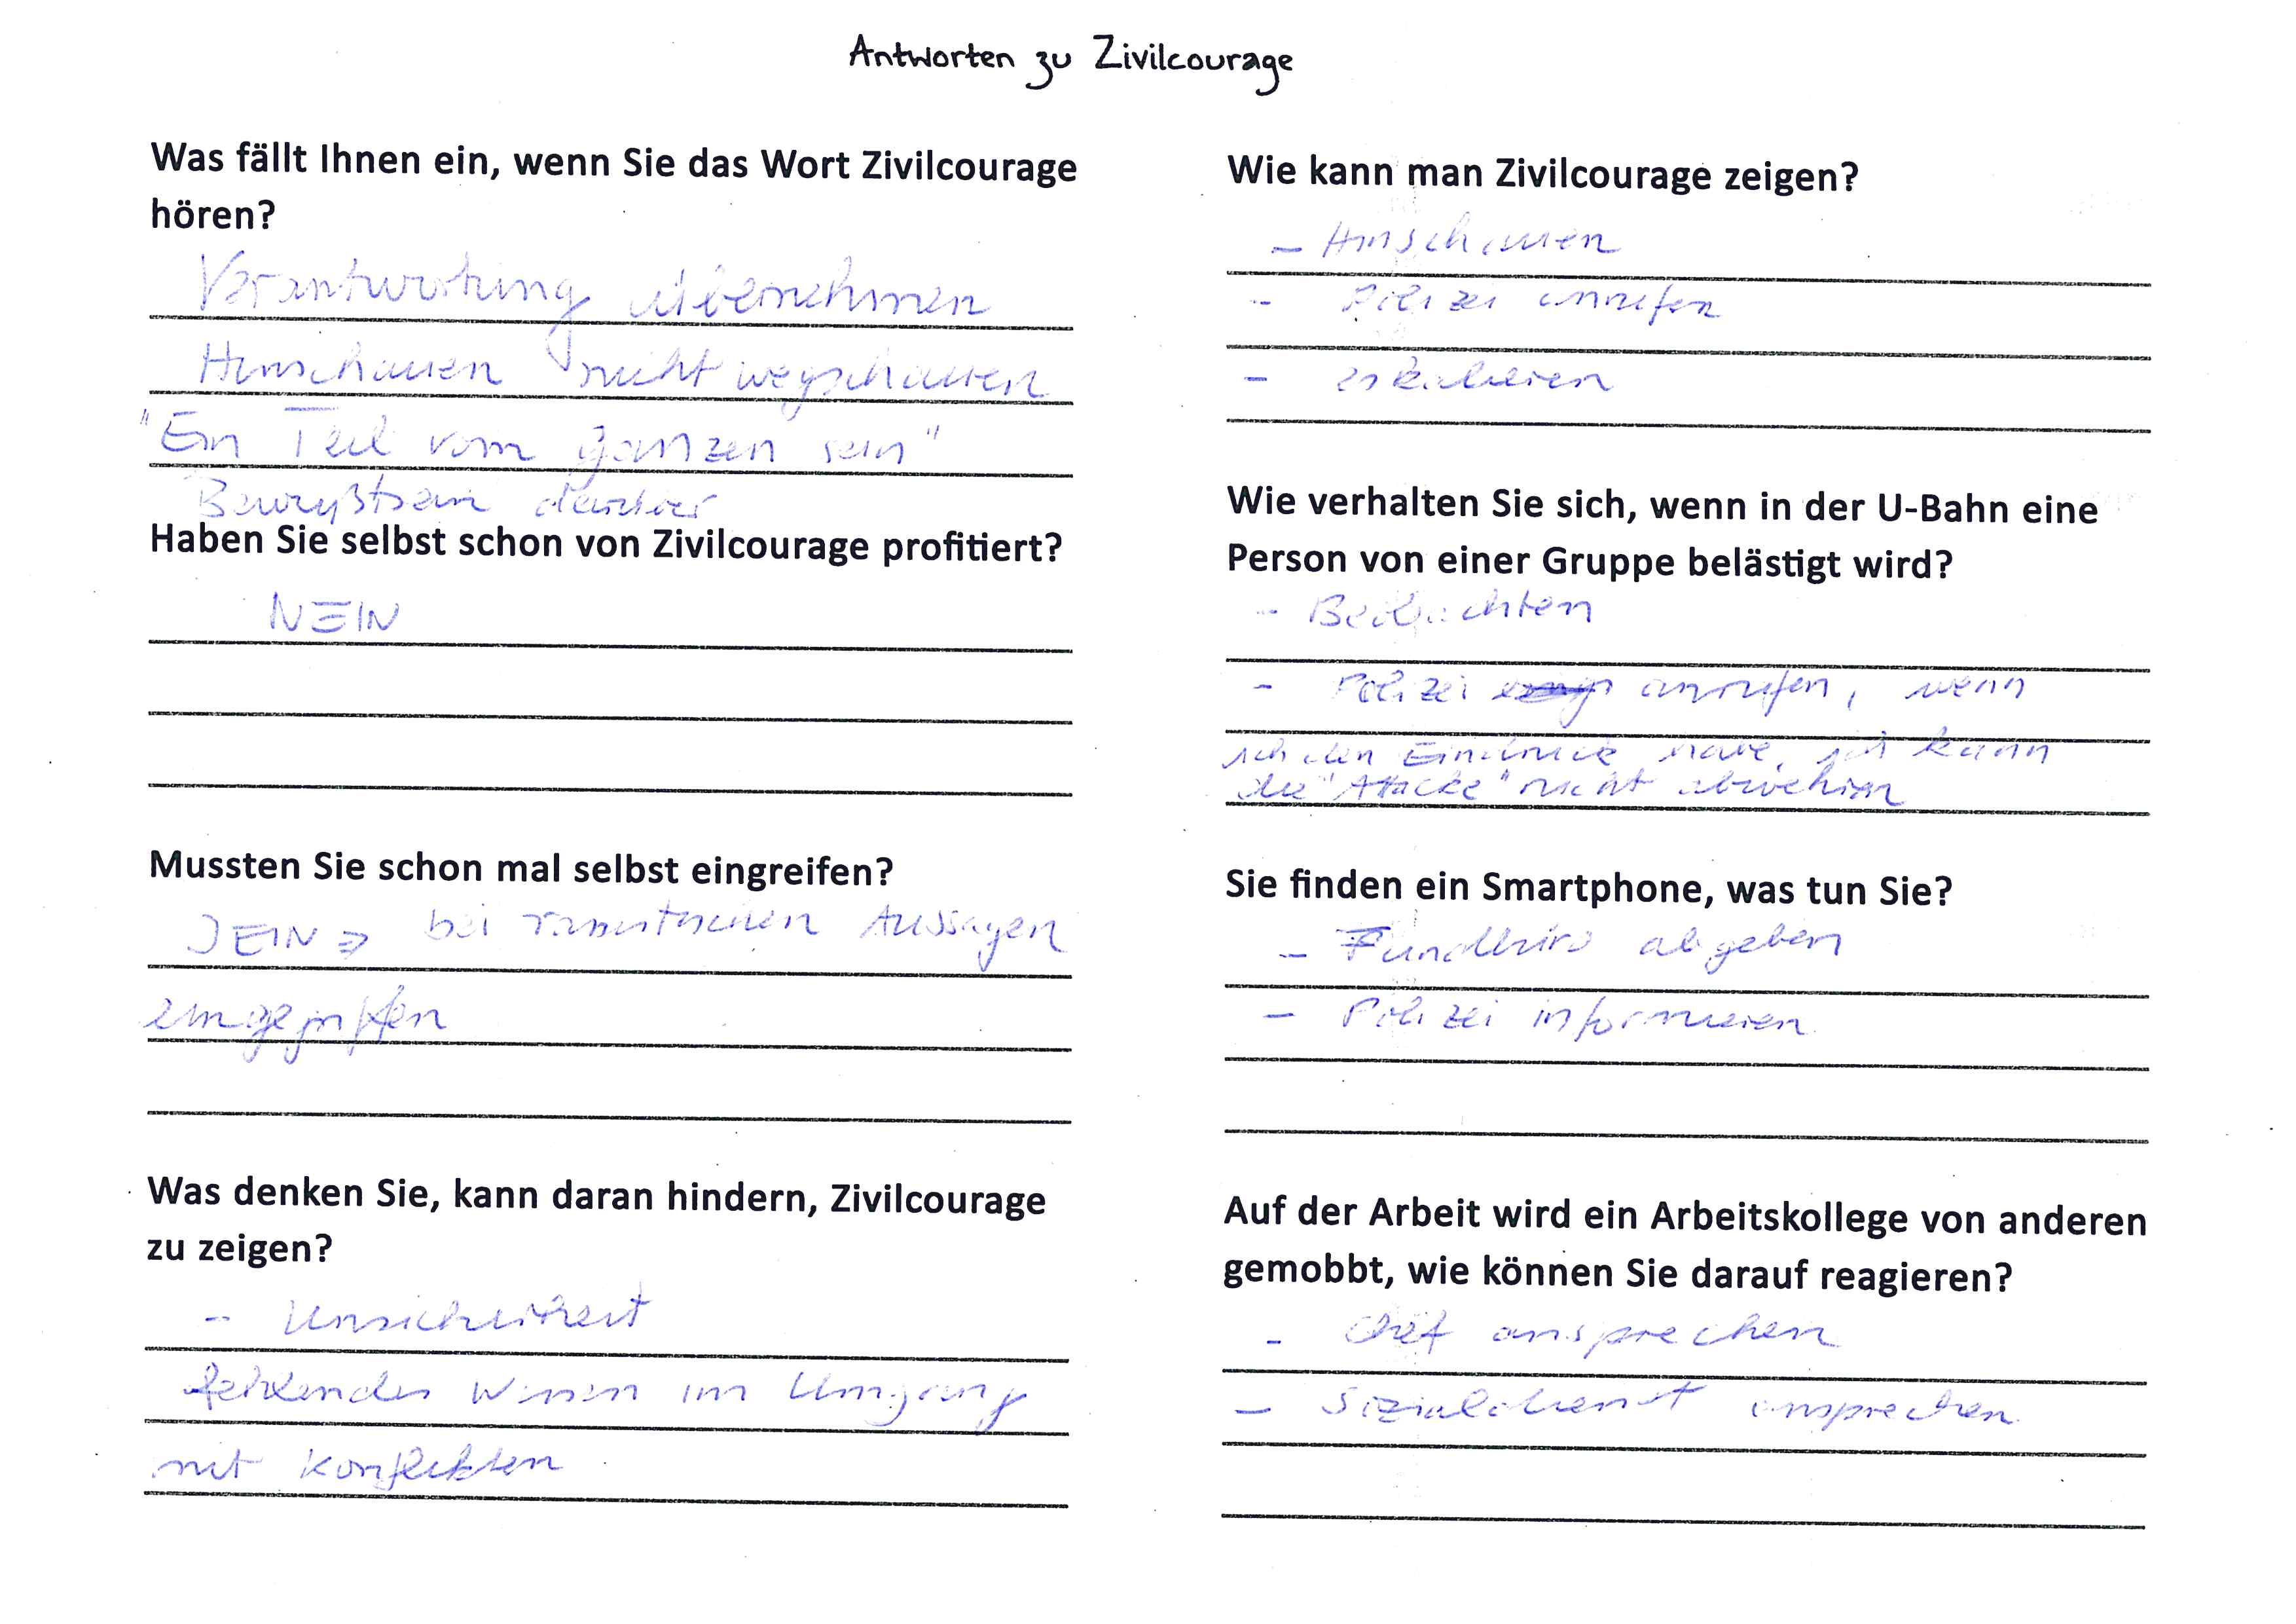 Antworten zu Zivilcourage
Was fällt Ihnen ein, wenn Sie das Wort Zivilcourage
hören?
Verantwortung übernehmen
Hinschauen nicht wegschauen
"Ein Teil vom ganzen sein"
Bewußtsein darüber
Haben Sie selbst schon von Zivilcourage profitiert?
NEIN
Mussten Sie schon mal selbst eingreifen?
JEIN => bei rassistischen Aussagen
eingegriffen
Was denken Sie, kann daran hindern, Zivilcourage
zu zeigen?
- Unsicherheit
fehlendes Wissen im Umgang
mit Konflikten
Wie kann man Zivilcourage zeigen?
- Hinschauen
- Polizei anrufen
- eskalieren
Wie verhalten Sie sich, wenn in der U-Bahn eine
Person von einer Gruppe belästigt wird?
- Beobachten
- Polizei anrufen, wenn
ich den Eindruck habe, ich kann
die "Attacke" nicht abwehren
Sie finden ein Smartphone, was tun Sie?
- Fundbüro abgeben
- Polizei informieren
Auf der Arbeit wird ein Arbeitskollege von anderen
gemobbt, wie können Sie darauf reagieren?
- Chef ansprechen
- Sozialdienst ansprechen